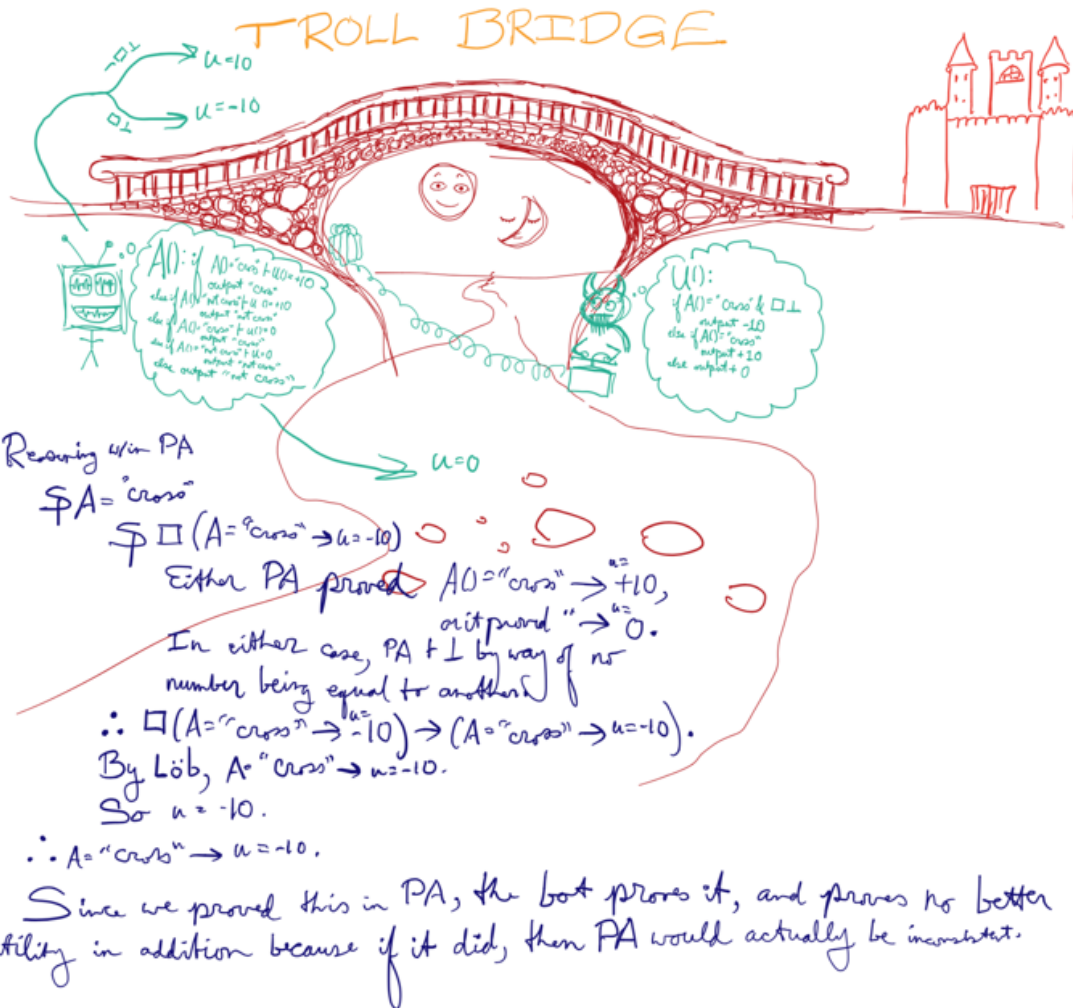 TROLL BRIDGE
¬□⊥
u=10
□⊥
u=-10
A():
if A()="cross" ⊢ U()=+10
output "cross"
else if A()="not cross" ⊢ U()=+10
output "not cross"
else if A()="cross" ⊢ U()=0
output "cross"
else if A()="not cross" ⊢ U=0
output "not cross"
else output "not cross"
U():
if A()="cross" & □⊥
output -10
else if A()="cross"
output +10
else output + 0
u=0
Reasoning w/in PA
A="cross"
□(A="cross"→u=-10)
Either PA proved A()="cross"→ u= +10,
or it proved "→ u= 0.
In either case, PA ⊢ ⊥ by way of no
number being equal to another.
∴ □(A="cross"→ u= -10)→(A="cross"→u=-10).
By Löb, A="cross"→u=-10.
So u=-10.
∴ A="cross"→ u=-10.
Since we proved this in PA, the bot proves it, and proves no better
utility in addition because if it did, then PA would actually be inconsistent.